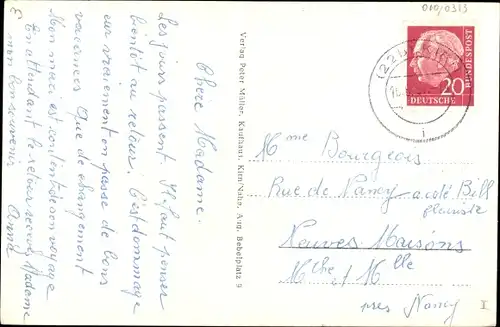 010/0313
Chère Madame.
Les jours passent. Il faut penser
bientôt au retour. C'est dommage
car vraiement on passe de bons
vacances. Que de changement
Mon mari est content de son voyage
En attendant le retour recevez Madame
mon bon souvenir
Anna
Verlag Peter Müller, Kaufhaus, Kirn/Nahe, Aug. Bebelplatz 9
(22b)
DEUTSCHE
BUNDESPOST
20
i
Mme Bourgeois
Rue de Nancy a coté Bill
fleuriste
Neuves Maisons
Mthe et Mlle
pres Nancy
I